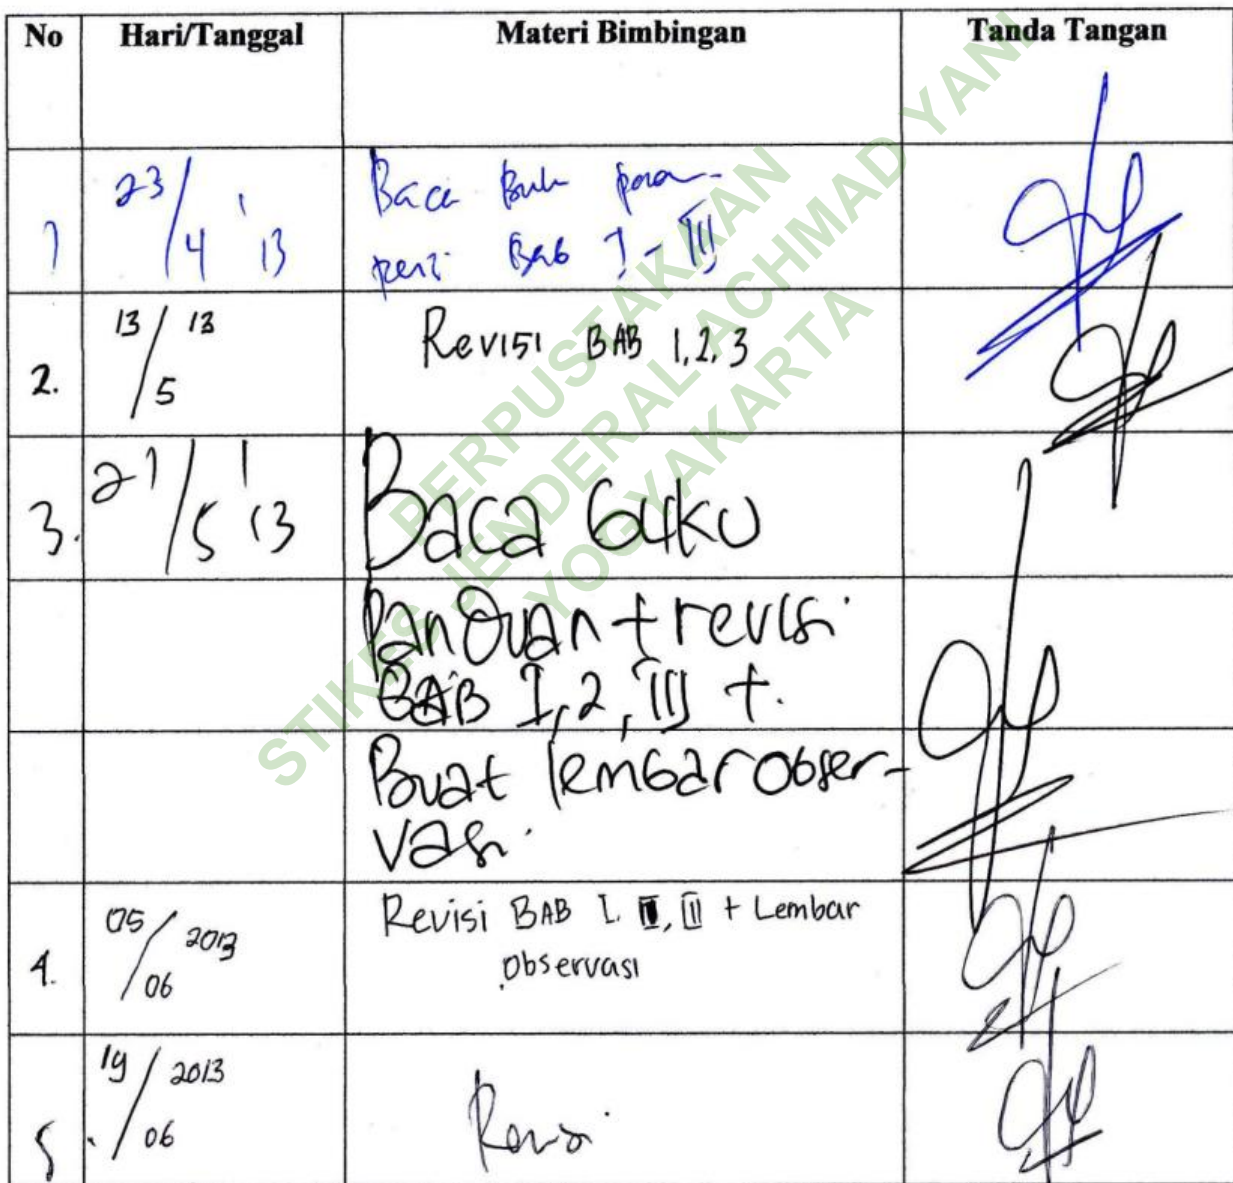 No Hari/Tanggal Materi Bimbingan Tanda Tangan
1 23/4 '13 Baca Buku
Bab I - III
2. 13/5 13 Revisi BAB 1, 2, 3
3. 21/5 '13 Baca buku
Panduan + revisi
BAB I, 2, III +.
Buat lembar obser-
vasi.
4. 05/06 2013 Revisi BAB I. II, III + Lembar
Observasi
5. 19/06 2013 Revisi
PERPUSTAKAAN
STIKES JENDERAL ACHMAD YANI
YOGYAKARTA